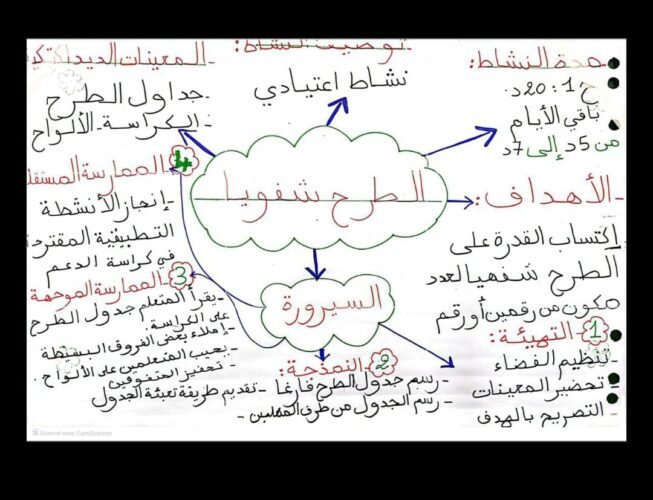 مدة النشاط:
ح 1: 20د.
باقي الأيام
من 5د إلى 7د
توصيف النشاط:
نشاط اعتيادي
المعينات الديداكتيكي
- جداول الطرح
- الكراسة - الألواح
الطرح شفويا
- الأهداف:
إكتساب القدرة على
الطرح شفهيا لعدد
مكون من رقمين أو رقم
السيرورة
1 - التهيئة:
- تنظيم الفضاء
- تحضير المعينات
- التصريح بالهدف
2 - النمذجة:
- رسم جدول الطرح فارغا
- رسم الجدول من طرف المتعلمين
- تقديم طريقة تعبئة الجدول
3 - الممارسة الموجهة
- يقرأ المتعلم جدول الطرح
على الكراسة.
- إملاء بعض الفروق البسيطة
- يجيب المتعلمين على الألواح.
- تحفيز المتفوقين
4 - الممارسة المستقل
- إنجاز الأنشطة
التطبيقية المقترحة
في كراسة الدعم
Scanned with CamScanner